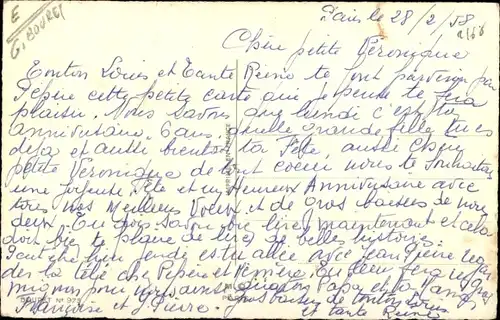 E
G. BOURET
Paris le 28/2/58
Chère petite Véronique
Tonton Louis et Tante Reine te font parvenir par
Pépère cette petite carte qui je pense te fera
plaisir. Nous savons que lundi c'est ton
anniversaire. 6 ans. quelle grande fille tu es
déjà et aussi bientôt ta Fête, aussi chère
petite Véronique de tout coeur nous te souhaitons
une Fête et un Heureux Anniversaire avec
tous nos Meilleurs Voeux et de Gros baisers de nous
deux. Tu dois savoir lire maintenant et cela
doit te plaire de lire de belles histoires.
Peut être bien jeudi es tu allée avec
der la télé chez Pépère et Mémère, un bien
mignon pour nous aussi Papa et ta Maman,
Françoise et Pierre. Gros baisers de tonton Louis
et tante Reine
BOURET N° 975